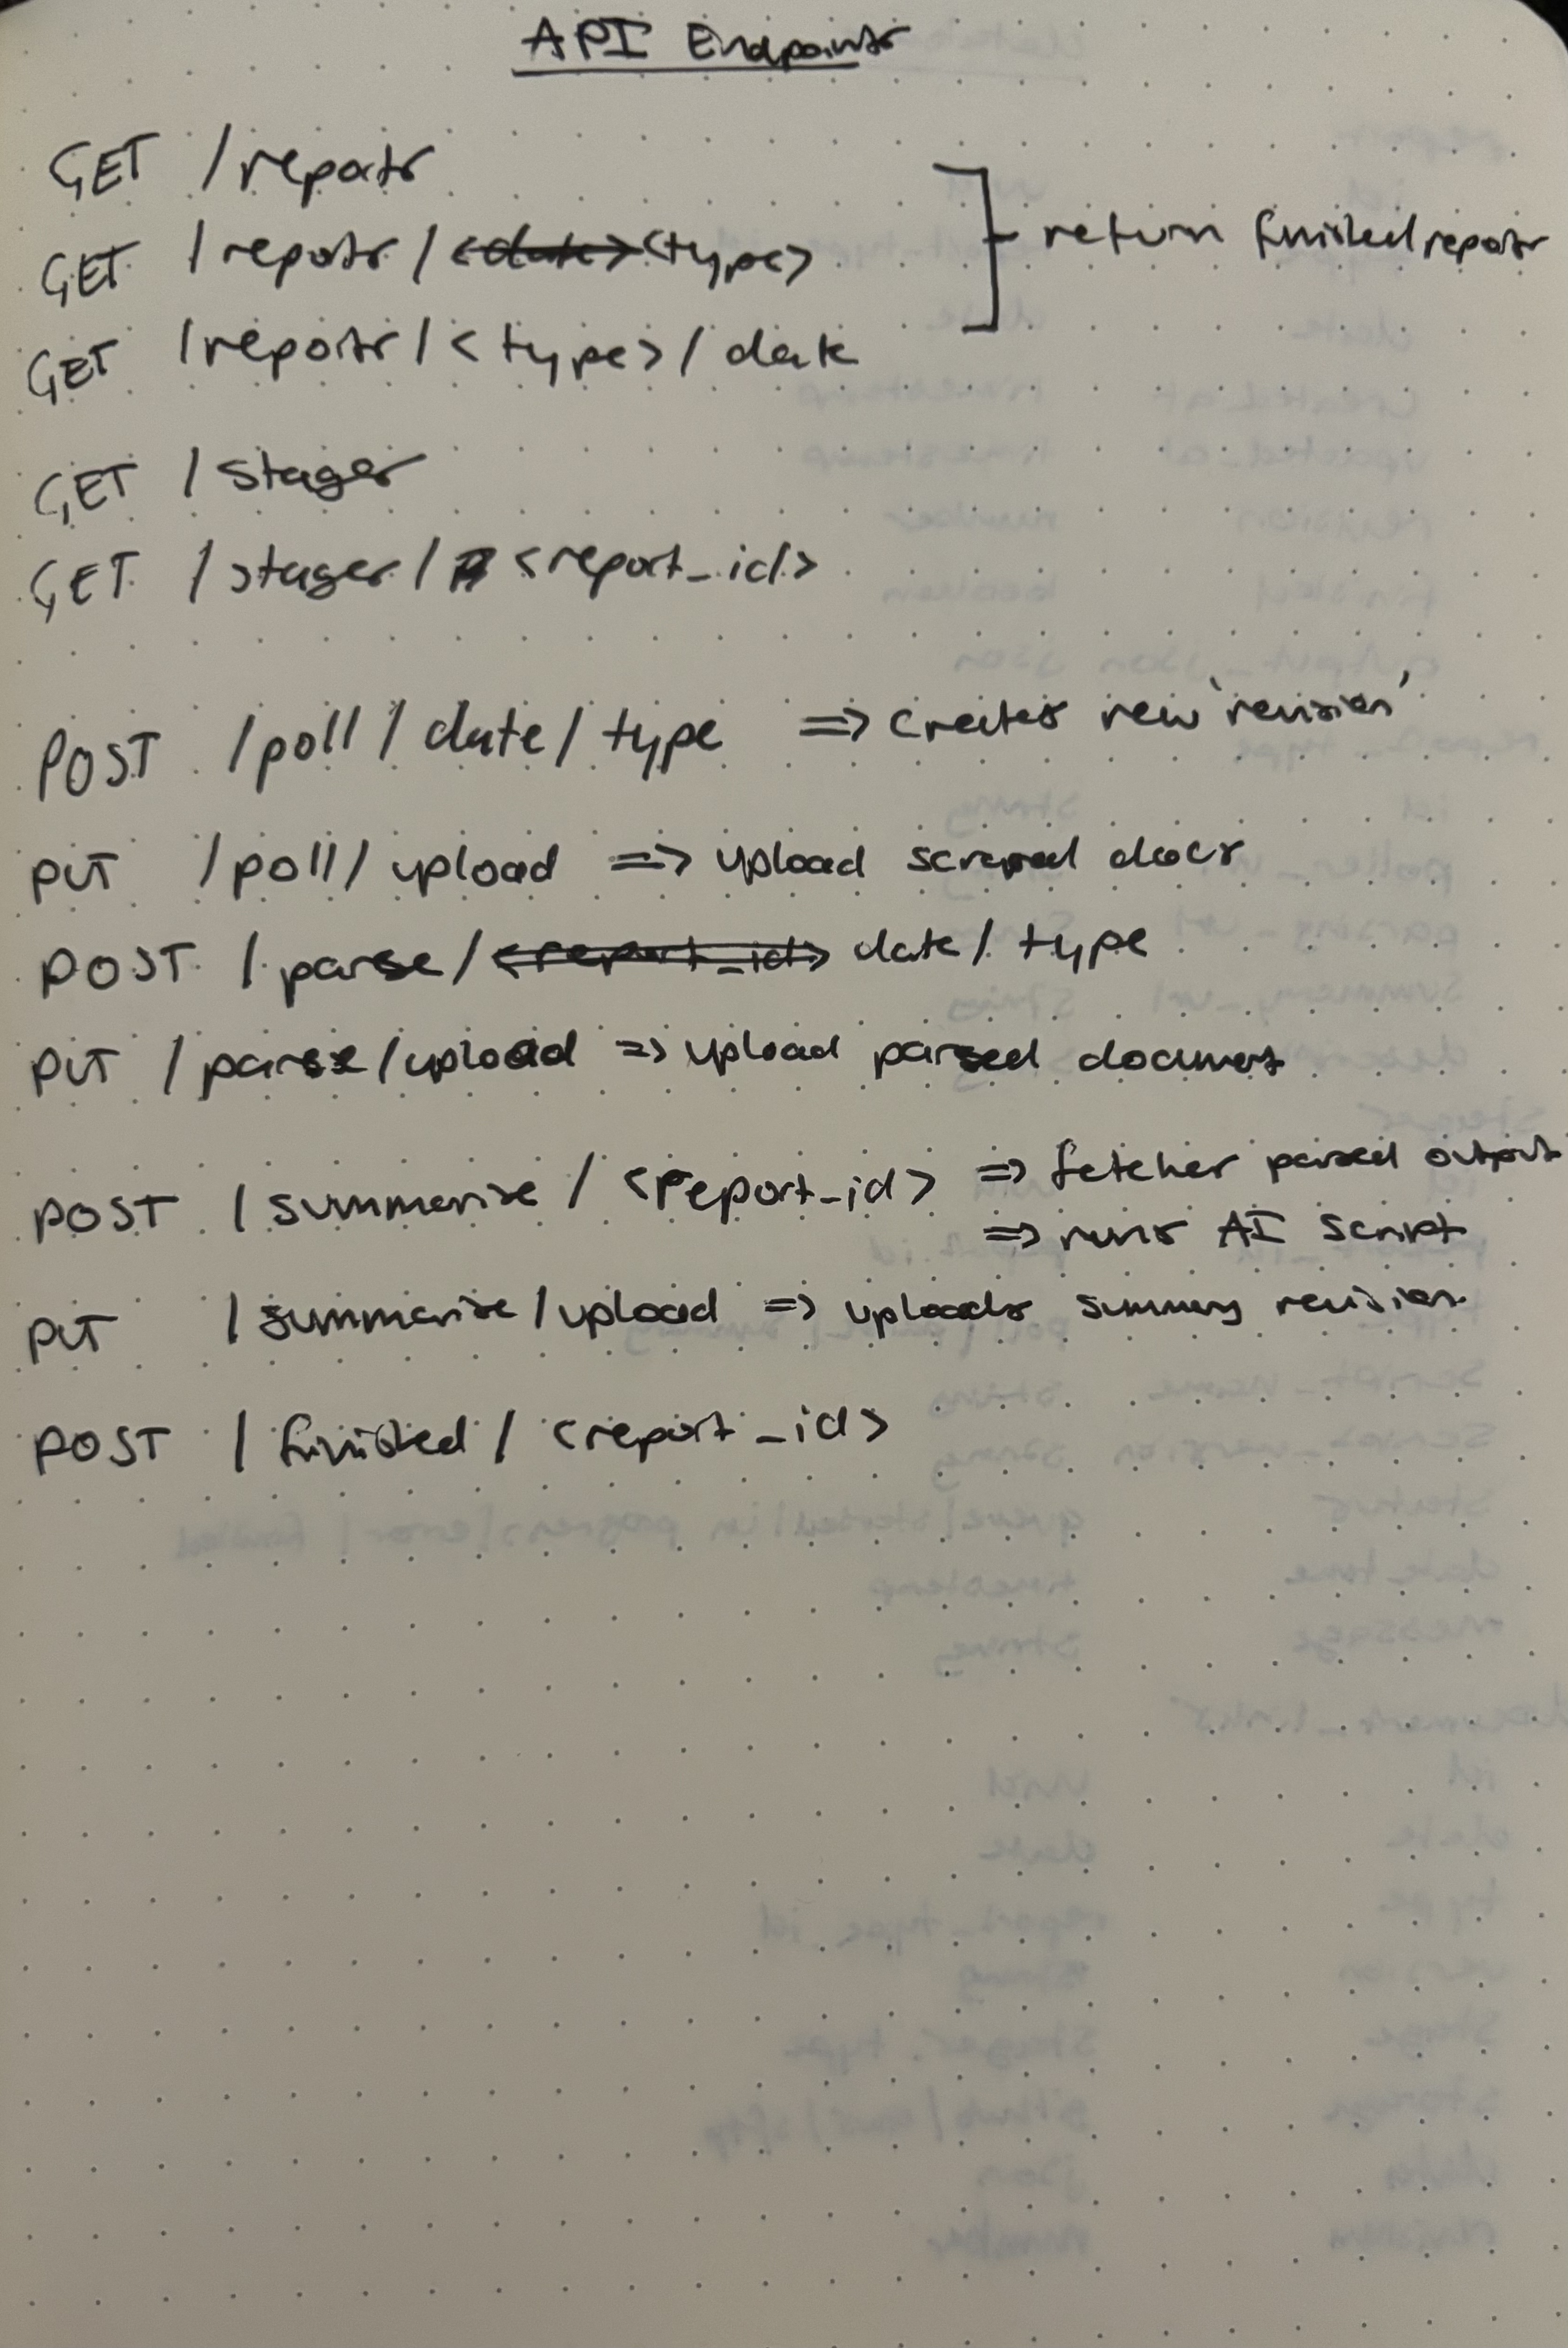 API Endpoints
GET /reports
GET /reports/<date><type>
GET /reports/<type>/date
return finished reports
GET /stages
GET /stages/<report_id>
POST /poll/date/type => creates new 'revision'
PUT /poll/upload => upload scraped docs
POST /parse/<report_id> date/type
PUT /parse/upload => upload parsed document
POST /summarise/<report_id> => fetches parsed output
=> runs AI script
PUT /summarise/upload => uploads summary revision
POST /finished/<report_id>